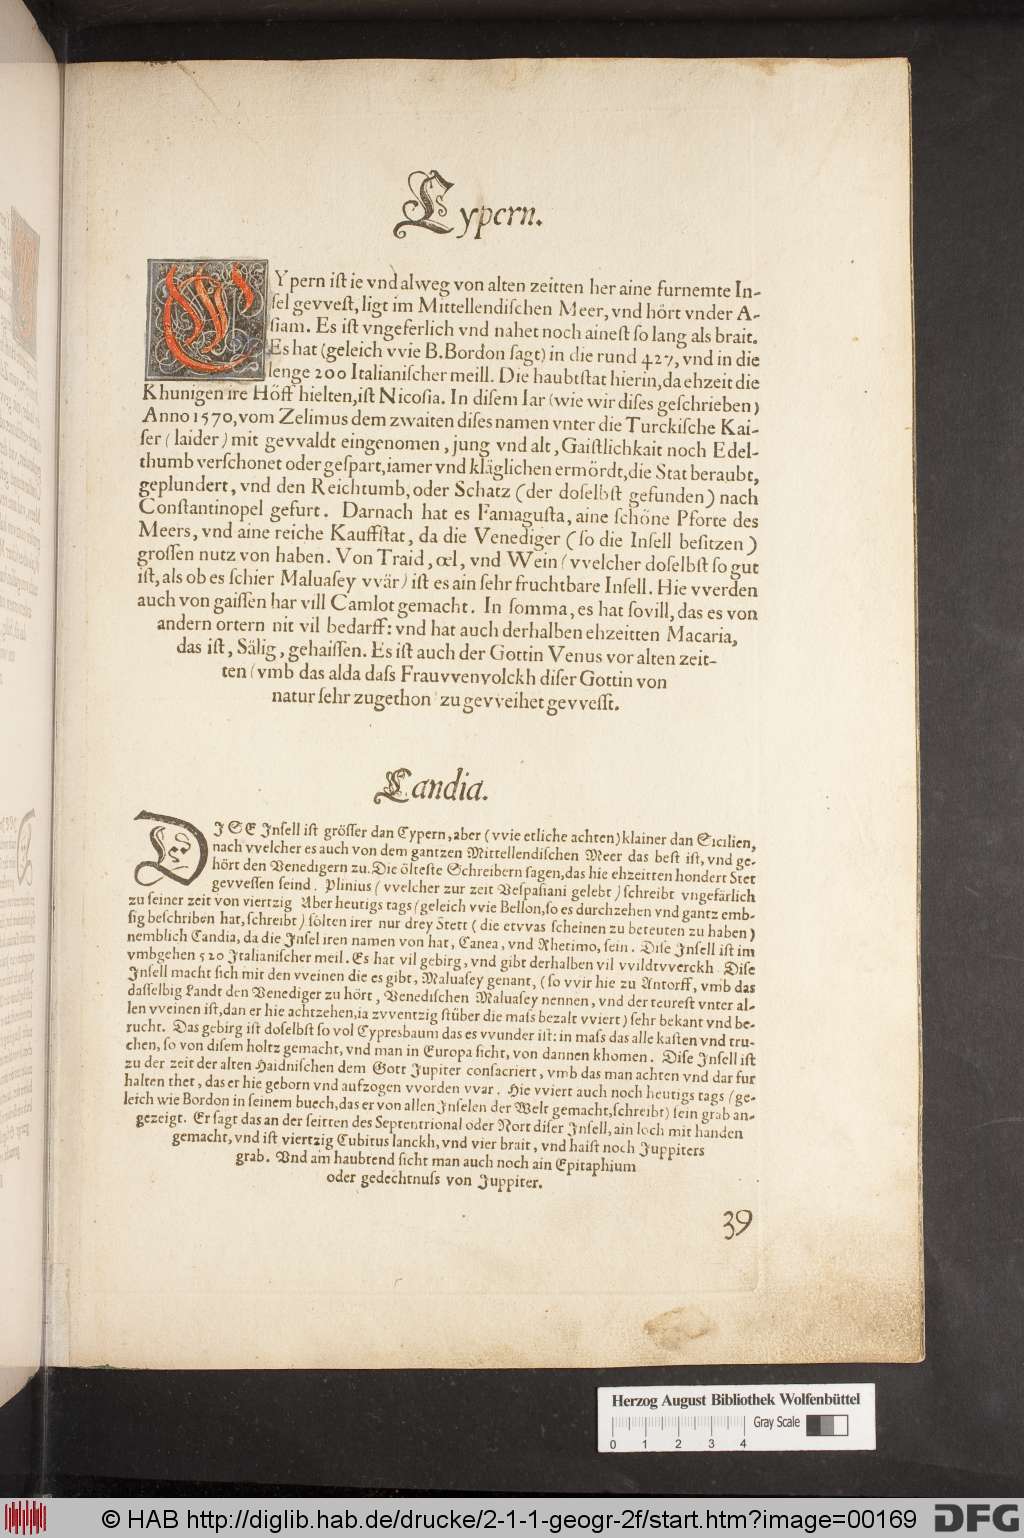 Cypern.
CYpern iſt ie vnd alweg von alten zeitten her aine furnemte In-
ſel gevveſt, ligt im Mittellendiſchen Meer, vnd hört vnder A-
ſiam. Es iſt vngeferlich vnd nahet noch aineſt ſo lang als brait.
Es hat (geleich vvie B. Bordon ſagt) in die rund 427, vnd in die
lenge 200 Italianiſcher meill. Die haubtſtat hierin, da ehzeit die
Khunigen ire Höff hielten, iſt Nicoſia. In diſem Iar (wie wir diſes geſchrieben)
Anno 1570, vom Zelimus dem zwaiten diſes namen vnter die Turckiſche Kai-
ſer (laider) mit gevvaldt eingenomen, jung vnd alt, Gaiſtlichkait noch Edel-
thumb verſchonet oder geſpart, iamer vnd kläglichen ermördt, die Stat beraubt,
geplundert, vnd den Reichtumb, oder Schatz (der doſelbſt gefunden) nach
Conſtantinopel gefurt. Darnach hat es Famaguſta, aine ſchöne Pforte des
Meers, vnd aine reiche Kauffſtat, da die Venediger (ſo die Inſell beſitzen)
groſſen nutz von haben. Von Traid, œl, vnd Wein (vvelcher doſelbſt ſo gut
iſt, als ob es ſchier Maluaſey vvär) iſt es ain ſehr fruchtbare Inſell. Hie vverden
auch von gaiſſen har vill Camlot gemacht. In ſomma, es hat ſovill, das es von
andern ortern nit vil bedarff: vnd hat auch derhalben ehzeitten Macaria,
das iſt, Sälig, gehaiſſen. Es iſt auch der Gottin Venus vor alten zeit-
ten (vmb das alda daſs Frauvvenvolckh diſer Gottin von
natur ſehr zugethon) zu gevveihet gevveſſt.
Candia.
DISE Inſell iſt gröſſer dan Cypern, aber (vvie etliche achten) klainer dan Sicilien,
nach vvelcher es auch von dem gantzen Mittellendiſchen Meer das beſt iſt, vnd ge-
hört den Venedigern zu. Die ölteſte Schreibern ſagen, das hie ehzeitten hondert Stet
gevveſſen ſeind. Plinius (vvelcher zur zeit Veſpaſiani gelebt) ſchreibt vngefärlich
zu ſeiner zeit von viertzig Aber heutigs tags (geleich vvie Bellon, ſo es durchzehen vnd gantz emb-
ſig beſchriben hat, ſchreibt) ſolten irer nur drey Stett (die etvvas ſcheinen zu beteuten zu haben)
nemblich Candia, da die Inſel iren namen von hat, Canea, vnd Rhetimo, ſein. Diſe Inſell iſt im
vmbgehen 520 Italianiſcher meil. Es hat vil gebirg, vnd gibt derhalben vil vvildtvverckh. Diſe
Inſell macht ſich mit den vveinen die es gibt, Maluaſey genant, (ſo vvir hie zu Antorff, vmb das
daſſelbig Landt den Venediger zu hört, Venediſchen Maluaſey nennen, vnd der teureſt vnter al-
len vveinen iſt, dan er hie achtzehen, ia zvventzig ſtüber die maſs bezalt vviert) ſehr bekant vnd be-
rucht. Das gebirg iſt doſelbſt ſo vol Cypresbaum das es vvunder iſt: in maſs das alle kaſten vnd tru-
chen, ſo von diſem holtz gemacht, vnd man in Europa ſicht, von dannen khomen. Diſe Inſell iſt
zu der zeit der alten Haidniſchen dem Gott Jupiter conſacriert, vmb das man achten vnd dar fur
halten thet, das er hie geborn vnd aufzogen vvorden vvar. Hie vviert auch noch heutigs tags (ge-
leich wie Bordon in ſeinem buech, das er von allen Inſelen der Welt gemacht, ſchreibt) ſein grab an-
gezeigt. Er ſagt das an der ſeitten des Septentrional oder Nort diſer Inſell, ain loch mit handen
gemacht, vnd iſt viertzig Cubitus lanckh, vnd vier brait, vnd haiſt noch Juppiters
grab. Vnd am haubtend ſicht man auch noch ain Epitaphium
oder gedechtnuſs von Juppiter.
39
Herzog August Bibliothek Wolfenbüttel
Gray Scale
0 1 2 3 4
© HAB http://diglib.hab.de/drucke/2-1-1-geogr-2f/start.htm?image=00169
DFG